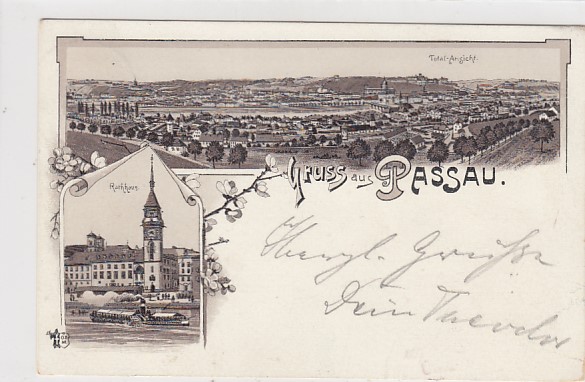 Total-Ansicht.
Rathhaus.
Gruss aus Passau.
Herzl. Grüße
Dein